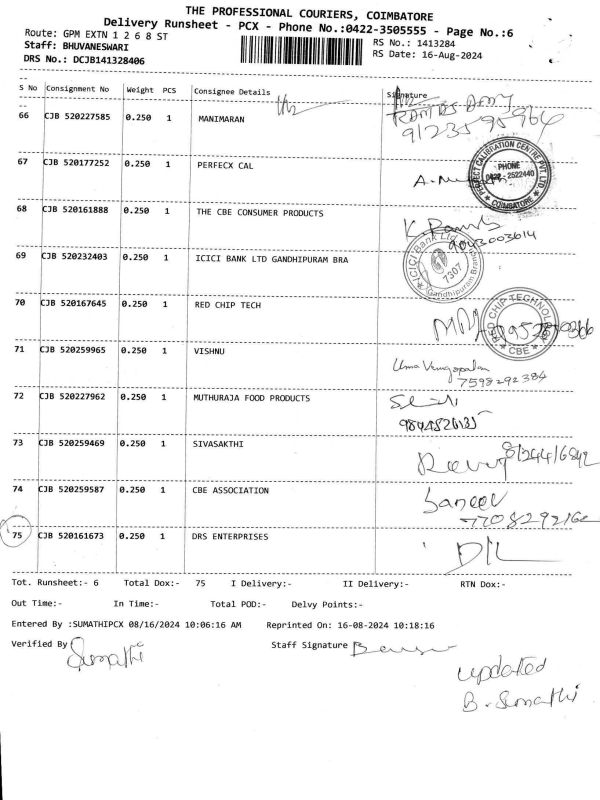 THE PROFESSIONAL COURIERS, COIMBATORE
Delivery Runsheet - PCX - Phone No.:0422-3505555 - Page No.:6
Route: GPM EXTN 1 2 6 8 ST
RS No.: 1413284
Staff: BHUVANESWARI
RS Date: 16-Aug-2024
DRS No.: DCJB141328406
S No Consignment No Weight PCS Consignee Details Signature
66 CJB 520227585 0.250 1 MANIMARAN
67 CJB 520177252 0.250 1 PERFECX CAL
PERFECT CALIBRATION CENTRE PVT. LTD
PHONE
0422 2522440
COIMBATORE
68 CJB 520161888 0.250 1 THE CBE CONSUMER PRODUCTS
9043003614
69 CJB 520232403 0.250 1 ICICI BANK LTD GANDHIPURAM BRA
ICICI Bank Ltd
7307
Gandhipuram Branch
70 CJB 520167645 0.250 1 RED CHIP TECH
RED CHIP TECHNOLOGY
CBE
71 CJB 520259965 0.250 1 VISHNU
Uma Venugopalan
7598292384
72 CJB 520227962 0.250 1 MUTHURAJA FOOD PRODUCTS
73 CJB 520259469 0.250 1 SIVASAKTHI
74 CJB 520259587 0.250 1 CBE ASSOCIATION
75 CJB 520161673 0.250 1 DRS ENTERPRISES
Tot. Runsheet:- 6 Total Dox:- 75 I Delivery:- II Delivery:- RTN Dox:-
Out Time:- In Time:- Total POD:- Delvy Points:-
Entered By :SUMATHIPCX 08/16/2024 10:06:16 AM Reprinted On: 16-08-2024 10:18:16
Verified By Sumathi Staff Signature
updated
B. Sumathi